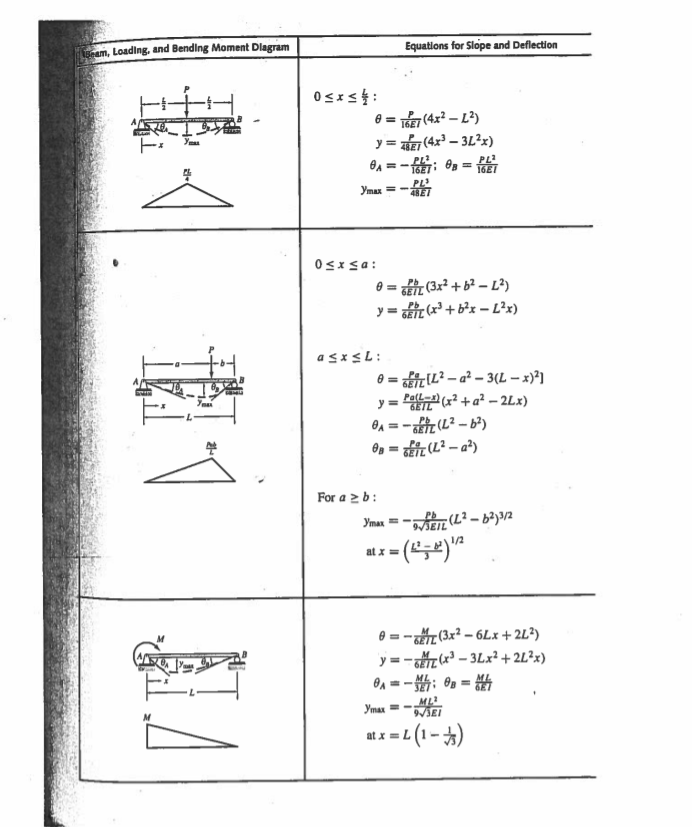 Beam, Loading, and Bending Moment Diagram
Equations for Slope and Deflection
P
L/2 L/2
A θA θB B
x ymax
PL/4
0 ≤ x ≤ L/2 :
θ = P/16EI (4x² − L²)
y = P/48EI (4x³ − 3L²x)
θA = −PL²/16EI; θB = PL²/16EI
ymax = −PL³/48EI
P
a b
A θA θB B
x ymax
L
Pab/L
0 ≤ x ≤ a :
θ = Pb/6EIL (3x² + b² − L²)
y = Pb/6EIL (x³ + b²x − L²x)
a ≤ x ≤ L :
θ = Pa/6EIL [L² − a² − 3(L − x)²]
y = Pa(L−x)/6EIL (x² + a² − 2Lx)
θA = −Pb/6EIL (L² − b²)
θB = Pa/6EIL (L² − a²)
For a ≥ b :
ymax = −Pb/9√3EIL (L² − b²)^3/2
at x = ((L² − b²)/3)^1/2
M
A θA ymax θB B
x
L
M
θ = −M/6EIL (3x² − 6Lx + 2L²)
y = −M/6EIL (x³ − 3Lx² + 2L²x)
θA = −ML/3EI; θB = ML/6EI
ymax = −ML²/9√3EI
at x = L (1 − 1/√3)